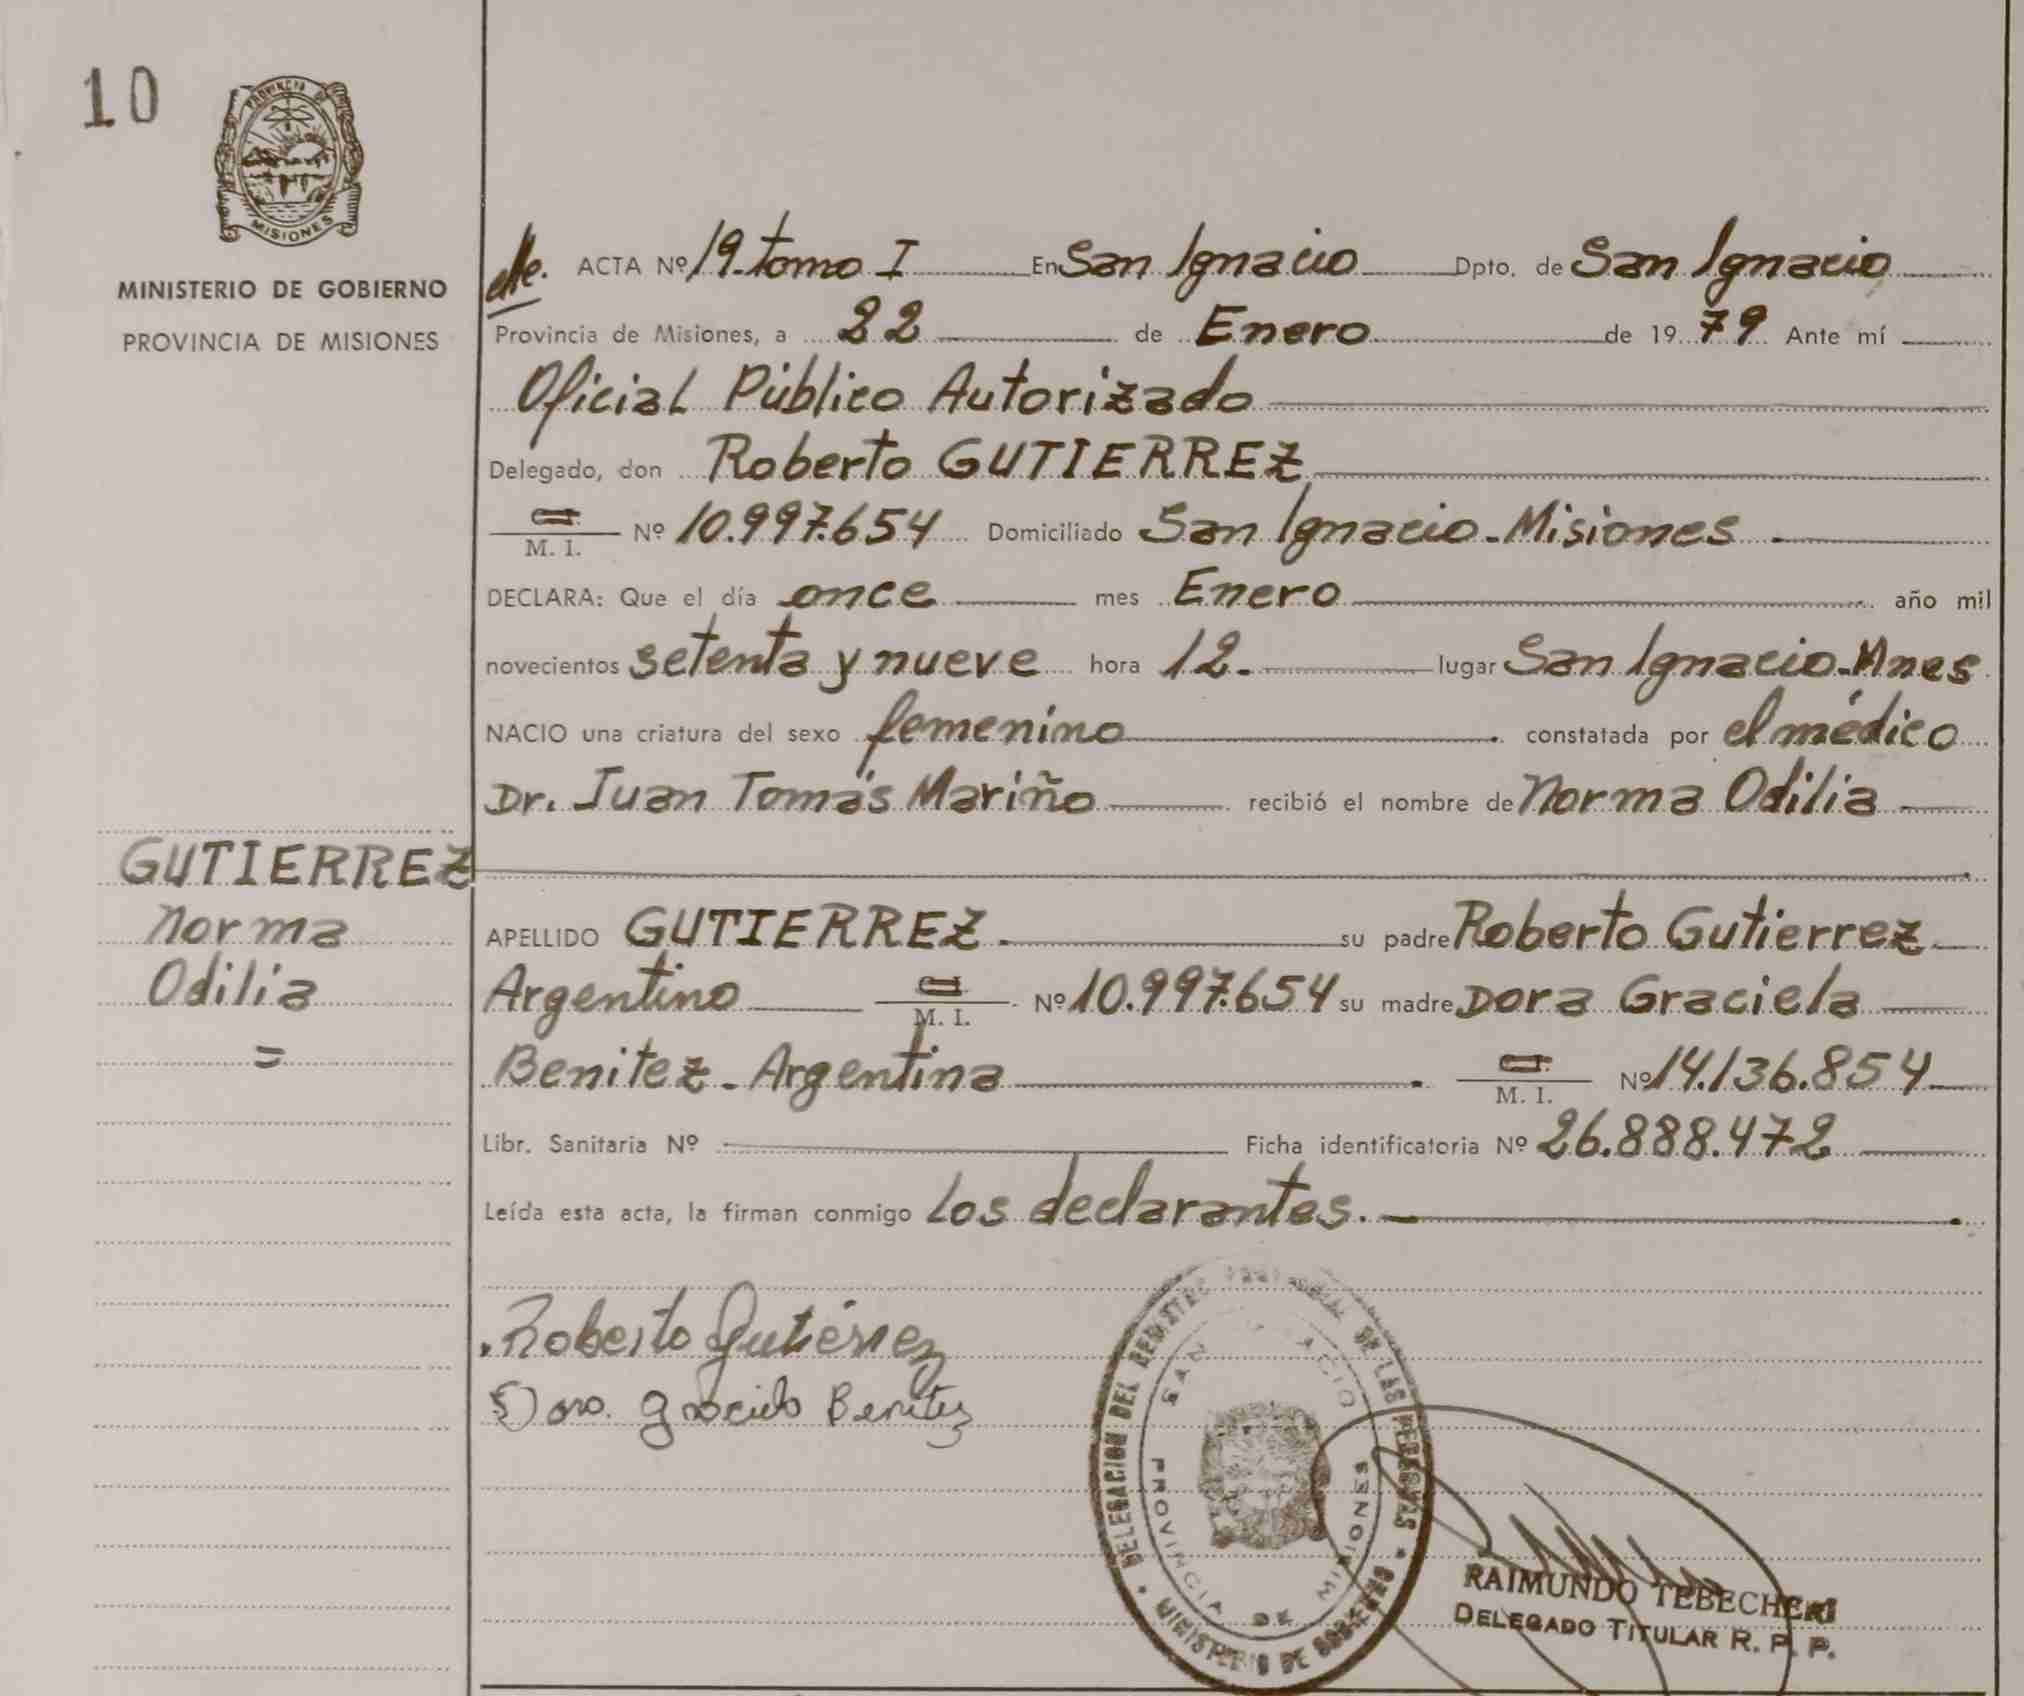 10
PROVINCIA DE
MISIONES
MINISTERIO DE GOBIERNO
PROVINCIA DE MISIONES
ACTA Nº 19-tomo I En San Ignacio Dpto. de San Ignacio
Provincia de Misiones, a 22 de Enero de 1979 Ante mí
Oficial Público Autorizado
Delegado, don Roberto GUTIERREZ
M. I. Nº 10.997.654 Domiciliado San Ignacio-Misiones
DECLARA: Que el día once mes Enero año mil
novecientos setenta y nueve hora 12.- lugar San Ignacio-Mnes
NACIO una criatura del sexo femenino constatada por el médico
Dr. Juan Tomás Mariño recibió el nombre de Norma Odilia
GUTIERREZ
Norma
Odilia
=
APELLIDO GUTIERREZ.- su padre Roberto Gutierrez
Argentino M. I. Nº 10.997.654 su madre Dora Graciela
Benitez - Argentina M. I. Nº 14.136.854
Libr. Sanitaria Nº Ficha identificatoria Nº 26.888.472
Leída esta acta, la firman conmigo los declarantes.-
Roberto Gutiérrez
Dora Graciela Benitez
DELEGACION DEL REGISTRO PROVINCIAL DE LAS PERSONAS
MINISTERIO DE GOBIERNO
PROVINCIA DE MISIONES
RAIMUNDO TEBECHERI
DELEGADO TITULAR R. P. P.